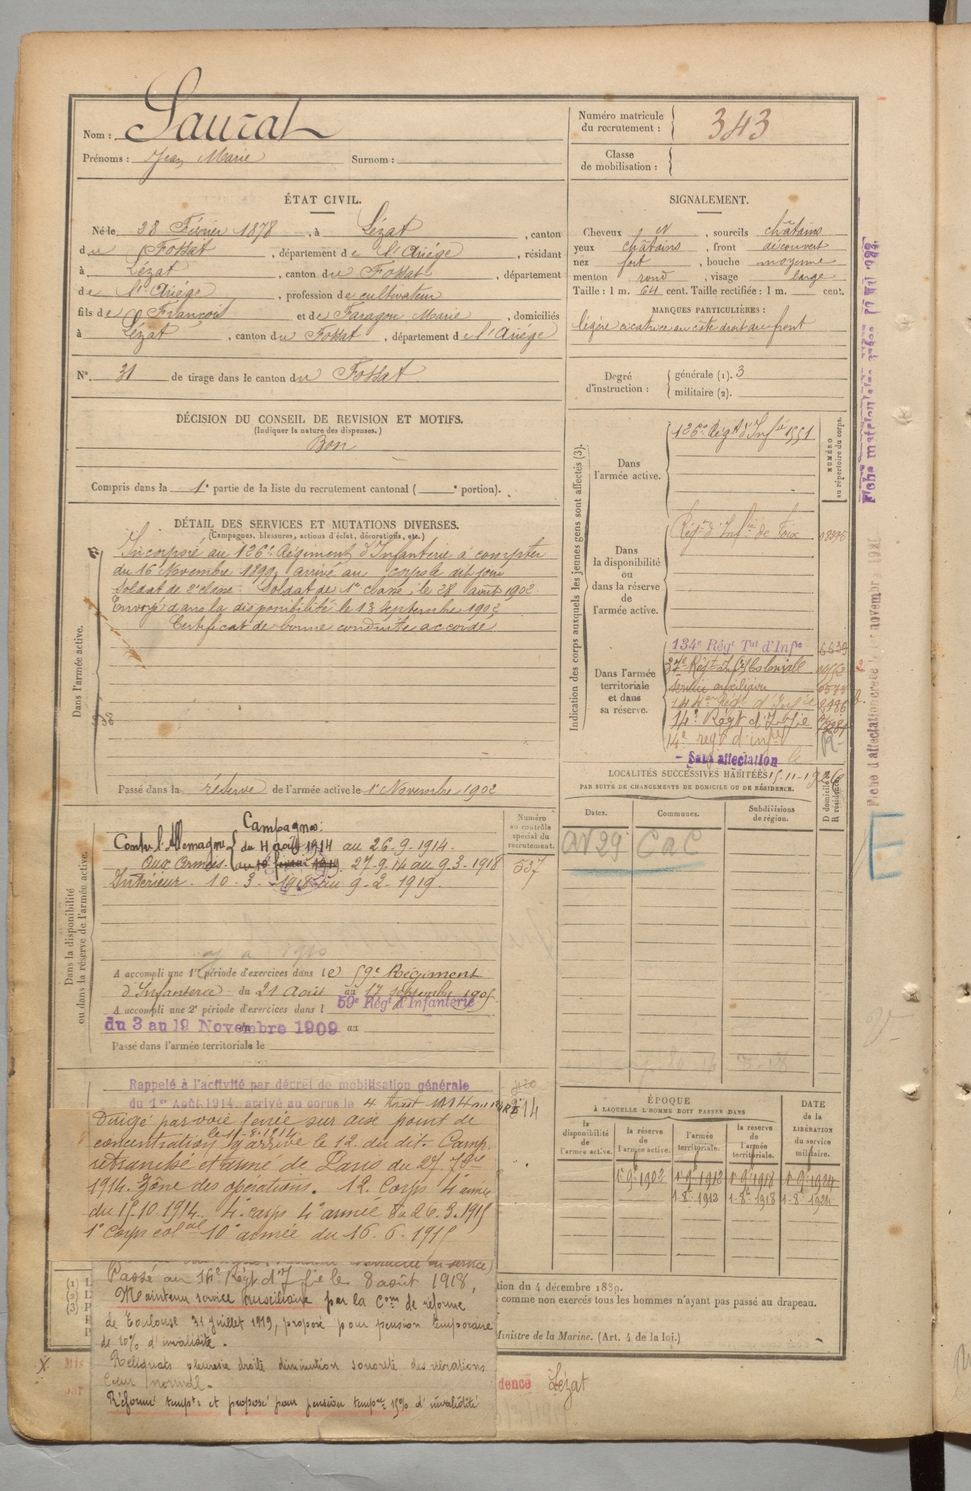 Nom : Sauzat
Prénoms : Jean Marie Surnom :
Numéro matricule du recrutement : 343
Classe de mobilisation :
ÉTAT CIVIL.
Né le 28 Février 1878, à Lézat, canton
du Fossat, département de l'Ariége, résidant
à Lézat, canton du Fossat, département
de l'Ariége, profession de cultivateur
fils de François et de Faragou Marie, domiciliés
à Lézat, canton du Fossat, département de l'Ariége
N° 31 de tirage dans le canton du Fossat
SIGNALEMENT.
Cheveux et, sourcils châtains
yeux châtains, front découvert
nez fort, bouche moyenne
menton rond, visage large
Taille : 1 m. 64 cent. Taille rectifiée : 1 m. cent.
MARQUES PARTICULIÈRES :
légère cicatrice au côté droit au front
Degré d'instruction : générale (1). 3
militaire (2).
DÉCISION DU CONSEIL DE REVISION ET MOTIFS.
(Indiquer la nature des dispenses.)
Bon
Compris dans la 1e partie de la liste du recrutement cantonal ( e portion).
DÉTAIL DES SERVICES ET MUTATIONS DIVERSES.
(Campagnes, blessures, actions d'éclat, décorations, etc.)
Dans l'armée active.
Incorporé au 126e Régiment d'Infanterie à compter
du 16 Novembre 1899, arrivé au corps le dit jour
soldat de 2e classe. Soldat de 1e classe, le 28 août 1902
Envoyé dans la disponibilité le 13 Septembre 1902
Certificat de bonne conduite accordé
Passé dans la réserve de l'armée active le 1e Novembre 1902
Indication des corps auxquels les jeunes gens sont affectés (3).
NUMÉRO au répertoire du corps.
Dans l'armée active.
126e Régt d'Infie 1551
Dans la disponibilité ou dans la réserve de l'armée active.
Régt d'Infie de Foix
Dans l'armée territoriale et dans sa réserve.
134e Régt Tal d'Infie
37e Régt Inf Coloniale
service auxiliaire
144e Régt d'Infie
14e Régt d'Infie
14e regt d'infie
Sans affectation
15-11-1926
LOCALITÉS SUCCESSIVES HABITÉES
PAR SUITE DE CHANGEMENTS DE DOMICILE OU DE RÉSIDENCE.
D domicile R résidence.
Dates. Communes. Subdivisions de région.
CaC
Dans la disponibilité ou dans la réserve de l'armée active.
Numéro au contrôle spécial du recrutement.
537
Campagnes
Contre l'Allemagne du 4 août 1914 au 26.9.1914.
Aux Armées. 27-9-14 au 9.3-1918
Intérieur. 10-3-1918 au 9-2-1919.
A accompli une 1re période d'exercices dans le 59e Régiment
d'Infanterie du 21 Août au 17 septembre 1905
A accompli une 2e période d'exercices dans l 59e Régt d'Infanterie
du 3 au 19 Novembre 1909 au
Passé dans l'armée territoriale le
Rappelé à l'activité par décret de mobilisation générale
du 1er Août 1914, arrivé au corps le 4 Août 1914
Dirigé par voie ferrée sur aise point de
concentration le 11-8-1914 y arrivé le 12 du dit. Camp
retranché et armé de Paris du 27 7bre
1914. Zône des opérations. 12. Corps 4e armée
du 15.10.1914. 4e corps 4e armée du 26.3.1915
1e Corps colal 10e armée du 16.6.1915
Passé au 14e Régt d'Ifie le 8 août 1918,
Maintenu service auxiliaire par la Com de réforme
de Toulouse 31 juillet 1919, proposé pour pension temporaire
de 10% d'invalidité.
Reliquats pleurésie droite diminution sonorité des vibrations
Cœur normal.
Réformé tempt et proposé pour pension tempre 15% d'invalidité
ÉPOQUE
À LAQUELLE L'HOMME DOIT PASSER DANS
DATE de la LIBÉRATION du service militaire.
la disponibilité de l'armée active. la réserve de l'armée active. l'armée territoriale. la réserve de l'armée territoriale.
1-9-1902 1-9-1912 1-9-1918 1-9-1924
1-8-1912 1-8-1918 1-8-1924
tion du 4 décembre 1889.
comme non exercés tous les hommes n'ayant pas passé au drapeau.
Ministre de la Marine. (Art. 4 de la loi.)
dence Lézat